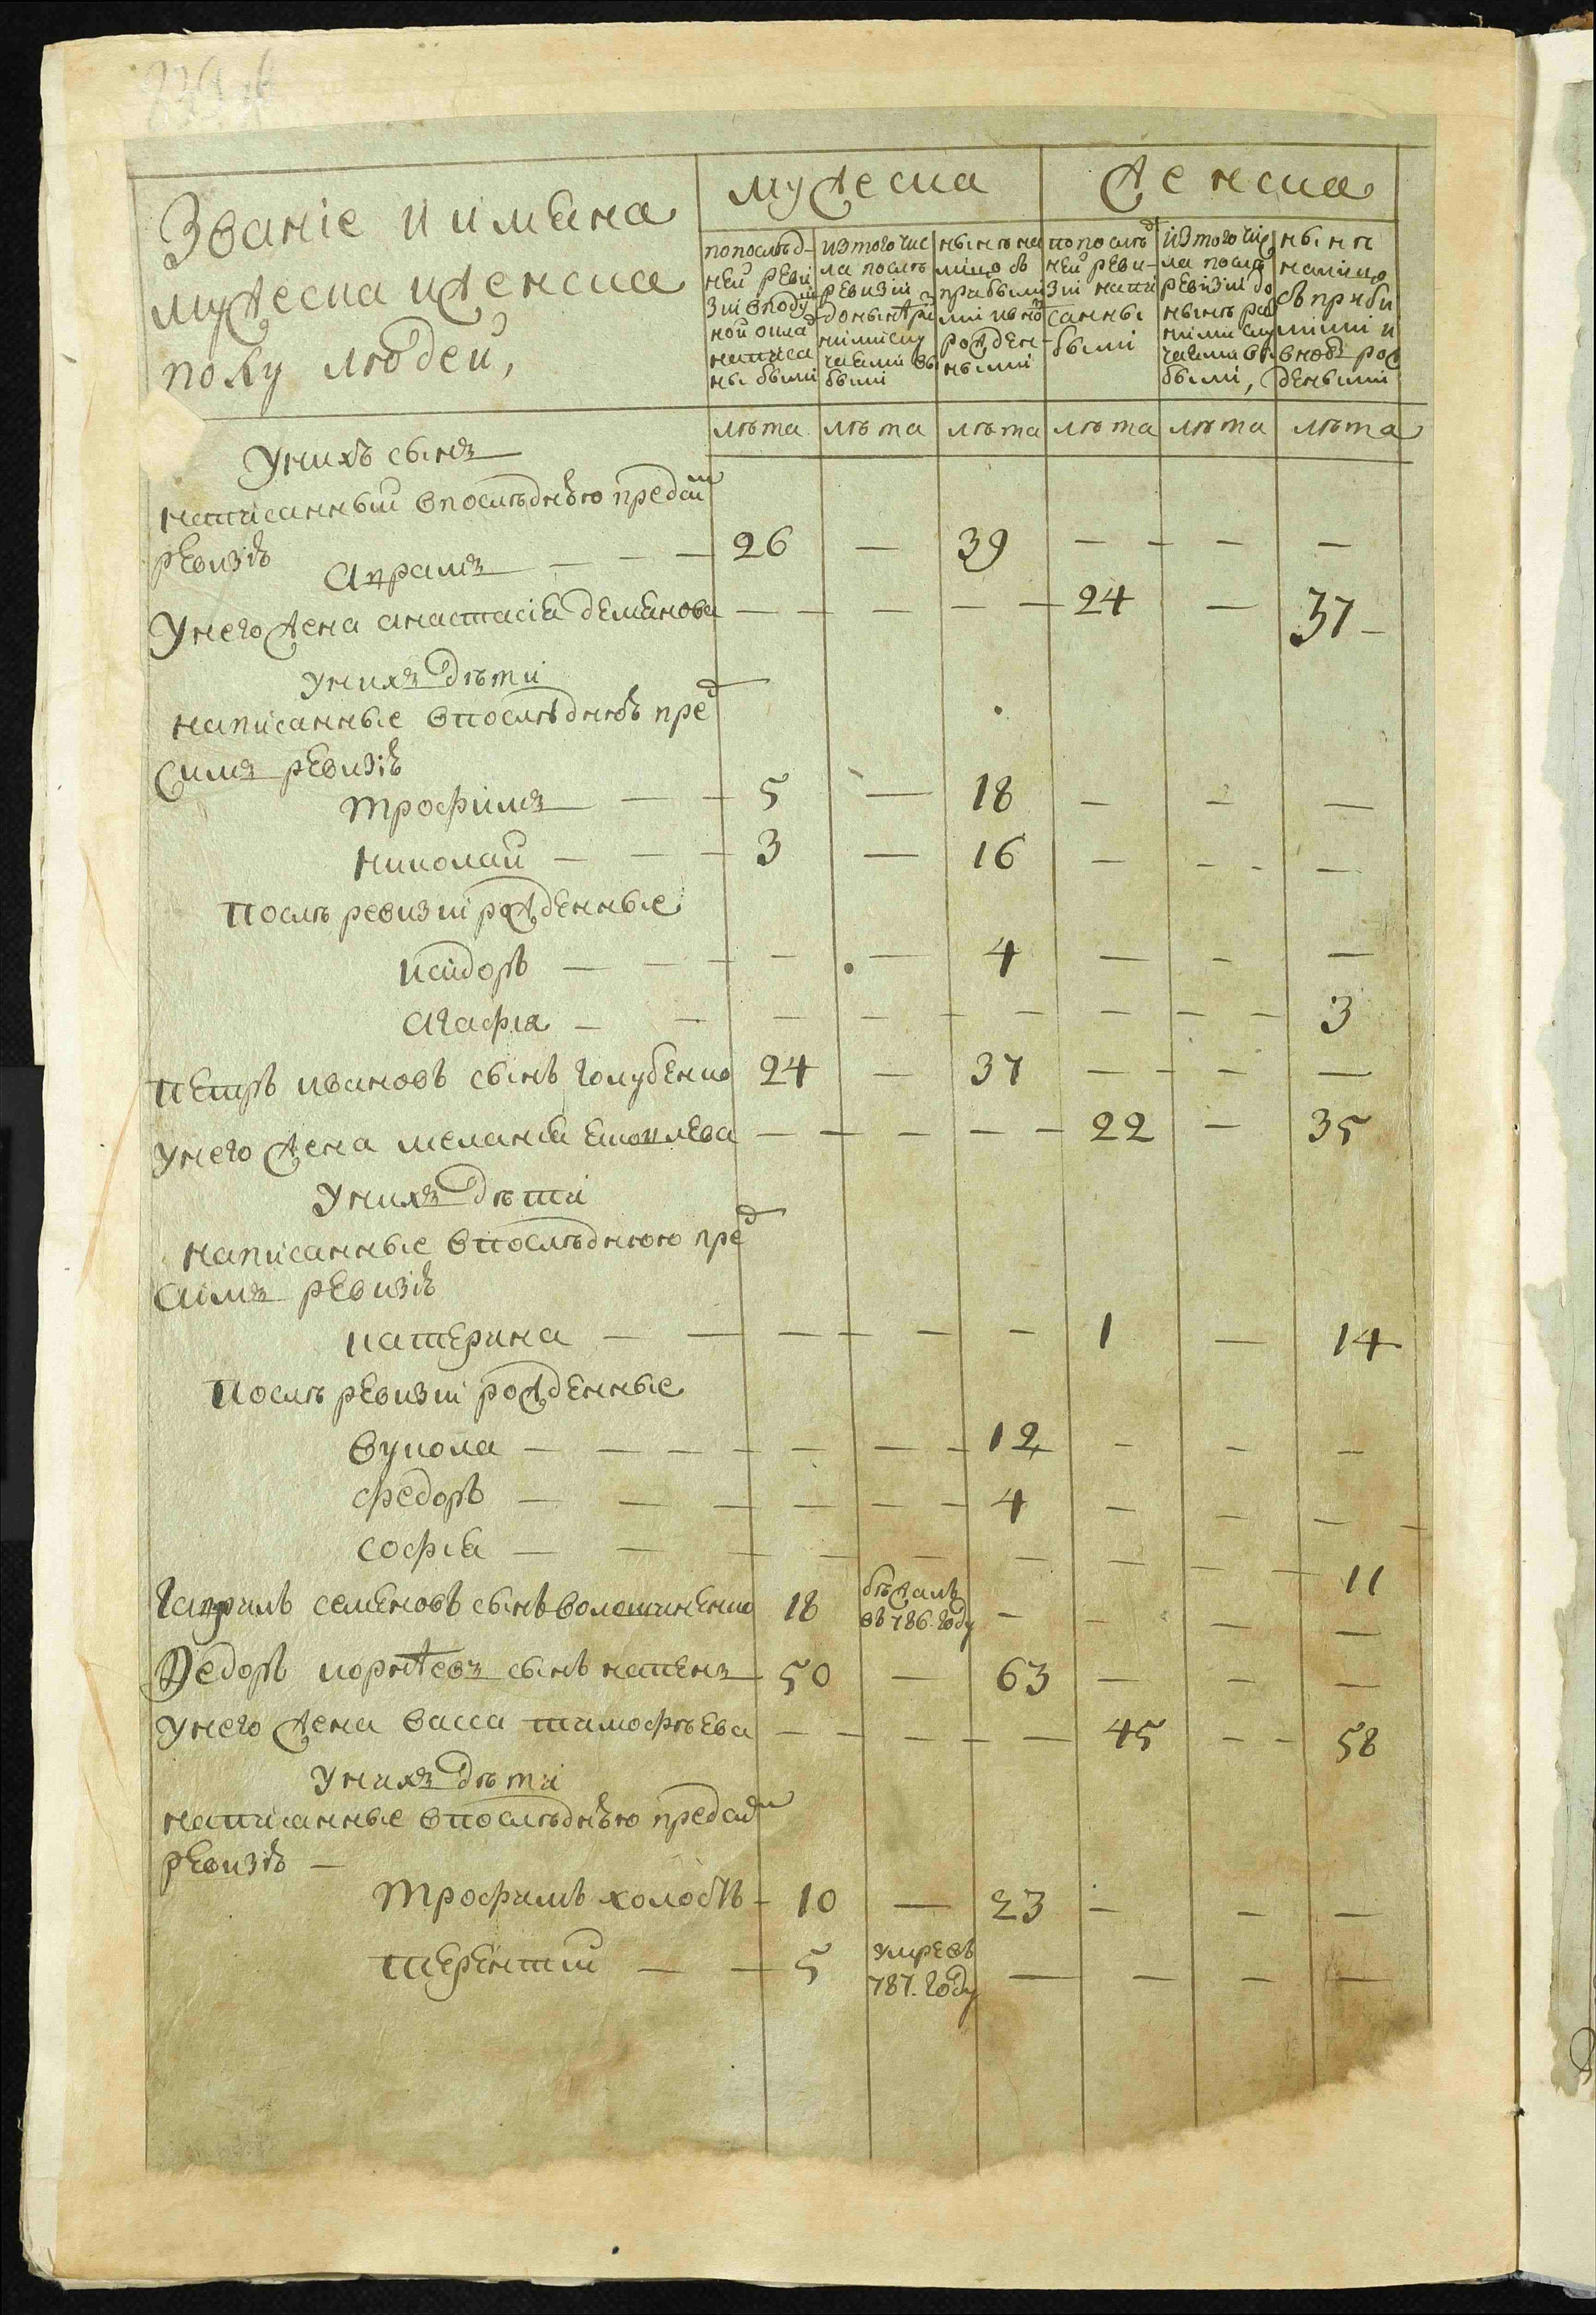 Званіе и имѣна
мужеска и женска
полу людей,
мужеска
женска
попослѣд-
ней реви
зіи вподу
ной окла
написа
ны были
изтого чис
ла послѣ
ревизіи
нымислу
чаями вы
были
нынѣ на
лицо съ
прибылы
рожден-
ными
попослѣ
ней реви-
зіи напи
санны
были
изтого чис
ла послѣ
ревизіи до
нынѣ раз
ными слу
чаями вы
были,
нынѣ
налицо
съ прибы
лыми и
вновь рож
деными
лѣта лѣта лѣта лѣта лѣта лѣта
Унихъ сынъ
написанный впослѣднѣю предъ
ревизіѣ
Аврамъ — — 26 — 39 — — — —
Унего жена анастасіа деманова — — — — — 24 — 37 —
Унихъ дѣти
написанные впослѣднюю пред
симъ ревизіѣ
трофимъ — — 5 — 18 — — —
николай — — — 3 — 16 — — - —
послѣ ревизіи рожденные
исидоръ — — — — — 4 — — —
агафіа — — — — — — — — — 3
петръ ивановъ сынъ голубенко 24 — 37 — — — —
Унего жена меланіа — — — — — 22 — 35
Унихъ дѣти
написанные впослѣднюю пред
симъ ревизіѣ
катерина — — — — — — 1 — 14
послѣ ревизіи рожденные
вукола — — — — — — — 12 — — —
федоръ — — — — — — 4 — — — —
софіа — — — — — — — — — 11
Гаврилъ семеновъ сынъ волошиненко 18 бѣжалъ
въ 786. году — — — —
Федоръ сынъ 50 — 63 — — —
Унего жена васса тимофѣева — — — — — 45 — — 58
Унихъ дѣти
написанные впослѣднѣю предъ
ревизіѣ —
Трофимъ холостъ — 10 — 23 — — —
терентій — — 5 умре въ
787. году — — — —